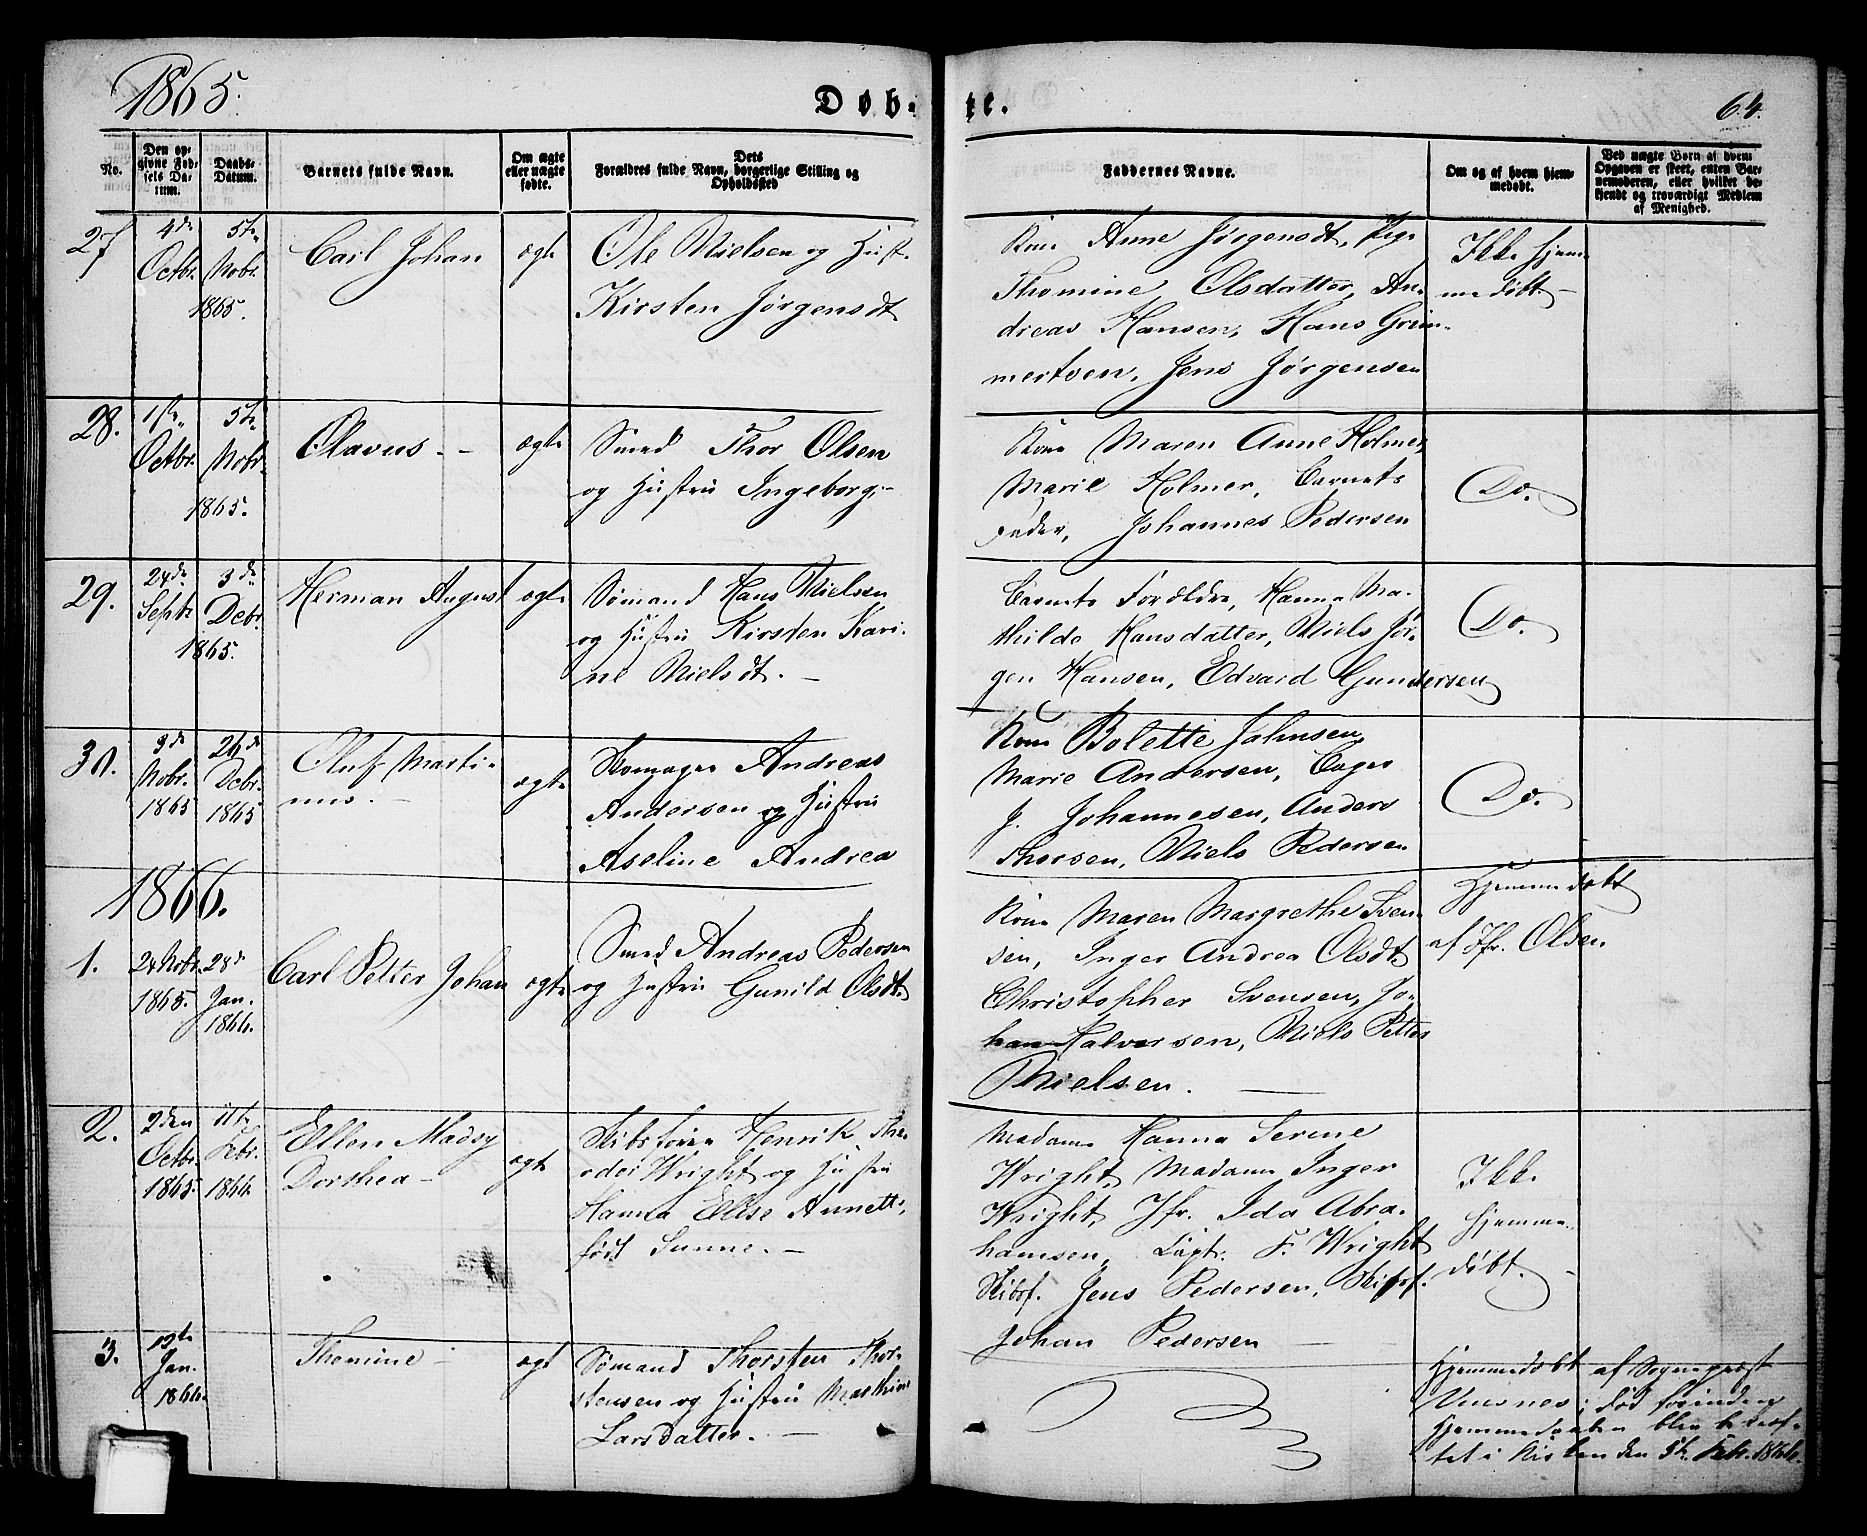 1865.
Døb-
te.
64.
No.
Den op-
givne Fød-
sels Da-
tum.
Daabs-
Datum.
Barnets fulde Navn.
Om ægte
eller uægte
fødte.
Dets
Forældres fulde Navn, borgerlige Stilling og
Opholdssted
Faddernes Navne.
Om og af hvem hjem-
medøbt.
Ved uægte Børn af hvem
Opgaven er skeet, enten Bar-
nemoderen, eller hvilket be-
kjendt og troværdigt Medlem
af Menighed.
27
4de
Octbr.
5te
Nobr.
1865.
Carl Johan
ægte
Ole Nielsen og Hust.
Kirsten Jørgensdt
Kone Anne Jørgensdt, Pige
Thomine Olsdatter, An-
dreas Hansen, Hans Grim-
mertsen, Jens Jørgensen
Ikke hjem-
medøbt. -
28.
1ste
Octbr.
5te
Nobr.
1865.
Olavus. -
ægte
Smed Thor Olsen
og Hustru Ingeborg. -
Kone Maren Anne Holmer,
Marie Holmer, Barnets
Fader, Johannes Pedersen
Do.
29.
24de
Septr.
3de
Debr.
1865.
Herman August
ægte
Sømand Hans Nielsen
og Hustru Kirsten Kari-
ne Nielsdt. -
Barnets Forældre, Hanna Ma-
thilde Hansdatter, Niels Jør-
gen Hansen, Edvard Gundersen
Do.
30.
9de
Nobr.
1865
26de
Debr.
1865
Oluf Marti-
nus. -
ægte
Skomager Andreas
Andersen og Hustru
Aseline Andrea
Kone Bolette Jahnsen,
Marie Andersen, Bager
J. Johannesen, Anders
Thorsen, Niels Pedersen
Do.
1866.
1.
24 Nobr.
1865.
28de
Jan.
1866.
Carl Petter Johan
ægte
Smed Andreas Pedersen
og Hustru Gunild Olsdt.
Kone Maren Margrethe Sven-
sen, Inger Andrea Olsdt.
Christopher Svensen, Jo-
han Halvorsen, Niels Petter
Nielsen. -
Hjemmedøbt
af Jfr. Olsen.
2.
2den
Octbr.
1865.
11te
Febr.
1866.
Ellen Madsy
Dorthea -
ægte
Skibsfører Henrik The-
odor Wright og Hustru
Hanna Elise Annette,
født Sunne. -
Madame Hanna Serine
Wright, Madame Inger
Wright, Jfr. Ida Abra-
hamsen, Capt. F. Wright
Skibsf. Jens Pedersen, Skibsf.
Johan Pedersen
Ikke
hjemme-
døbt. -
3.
13te
Jan.
1866.
Thomine -
ægt
Sømand Thorsten Thor-
stensen og Hustru Mathine
Larsdatter. -
Hjemmedøbt af Sognepræst
død forinden
Hjemmedaaben blev bekræf-
tet i Kirken den 5te Feb. 1866.